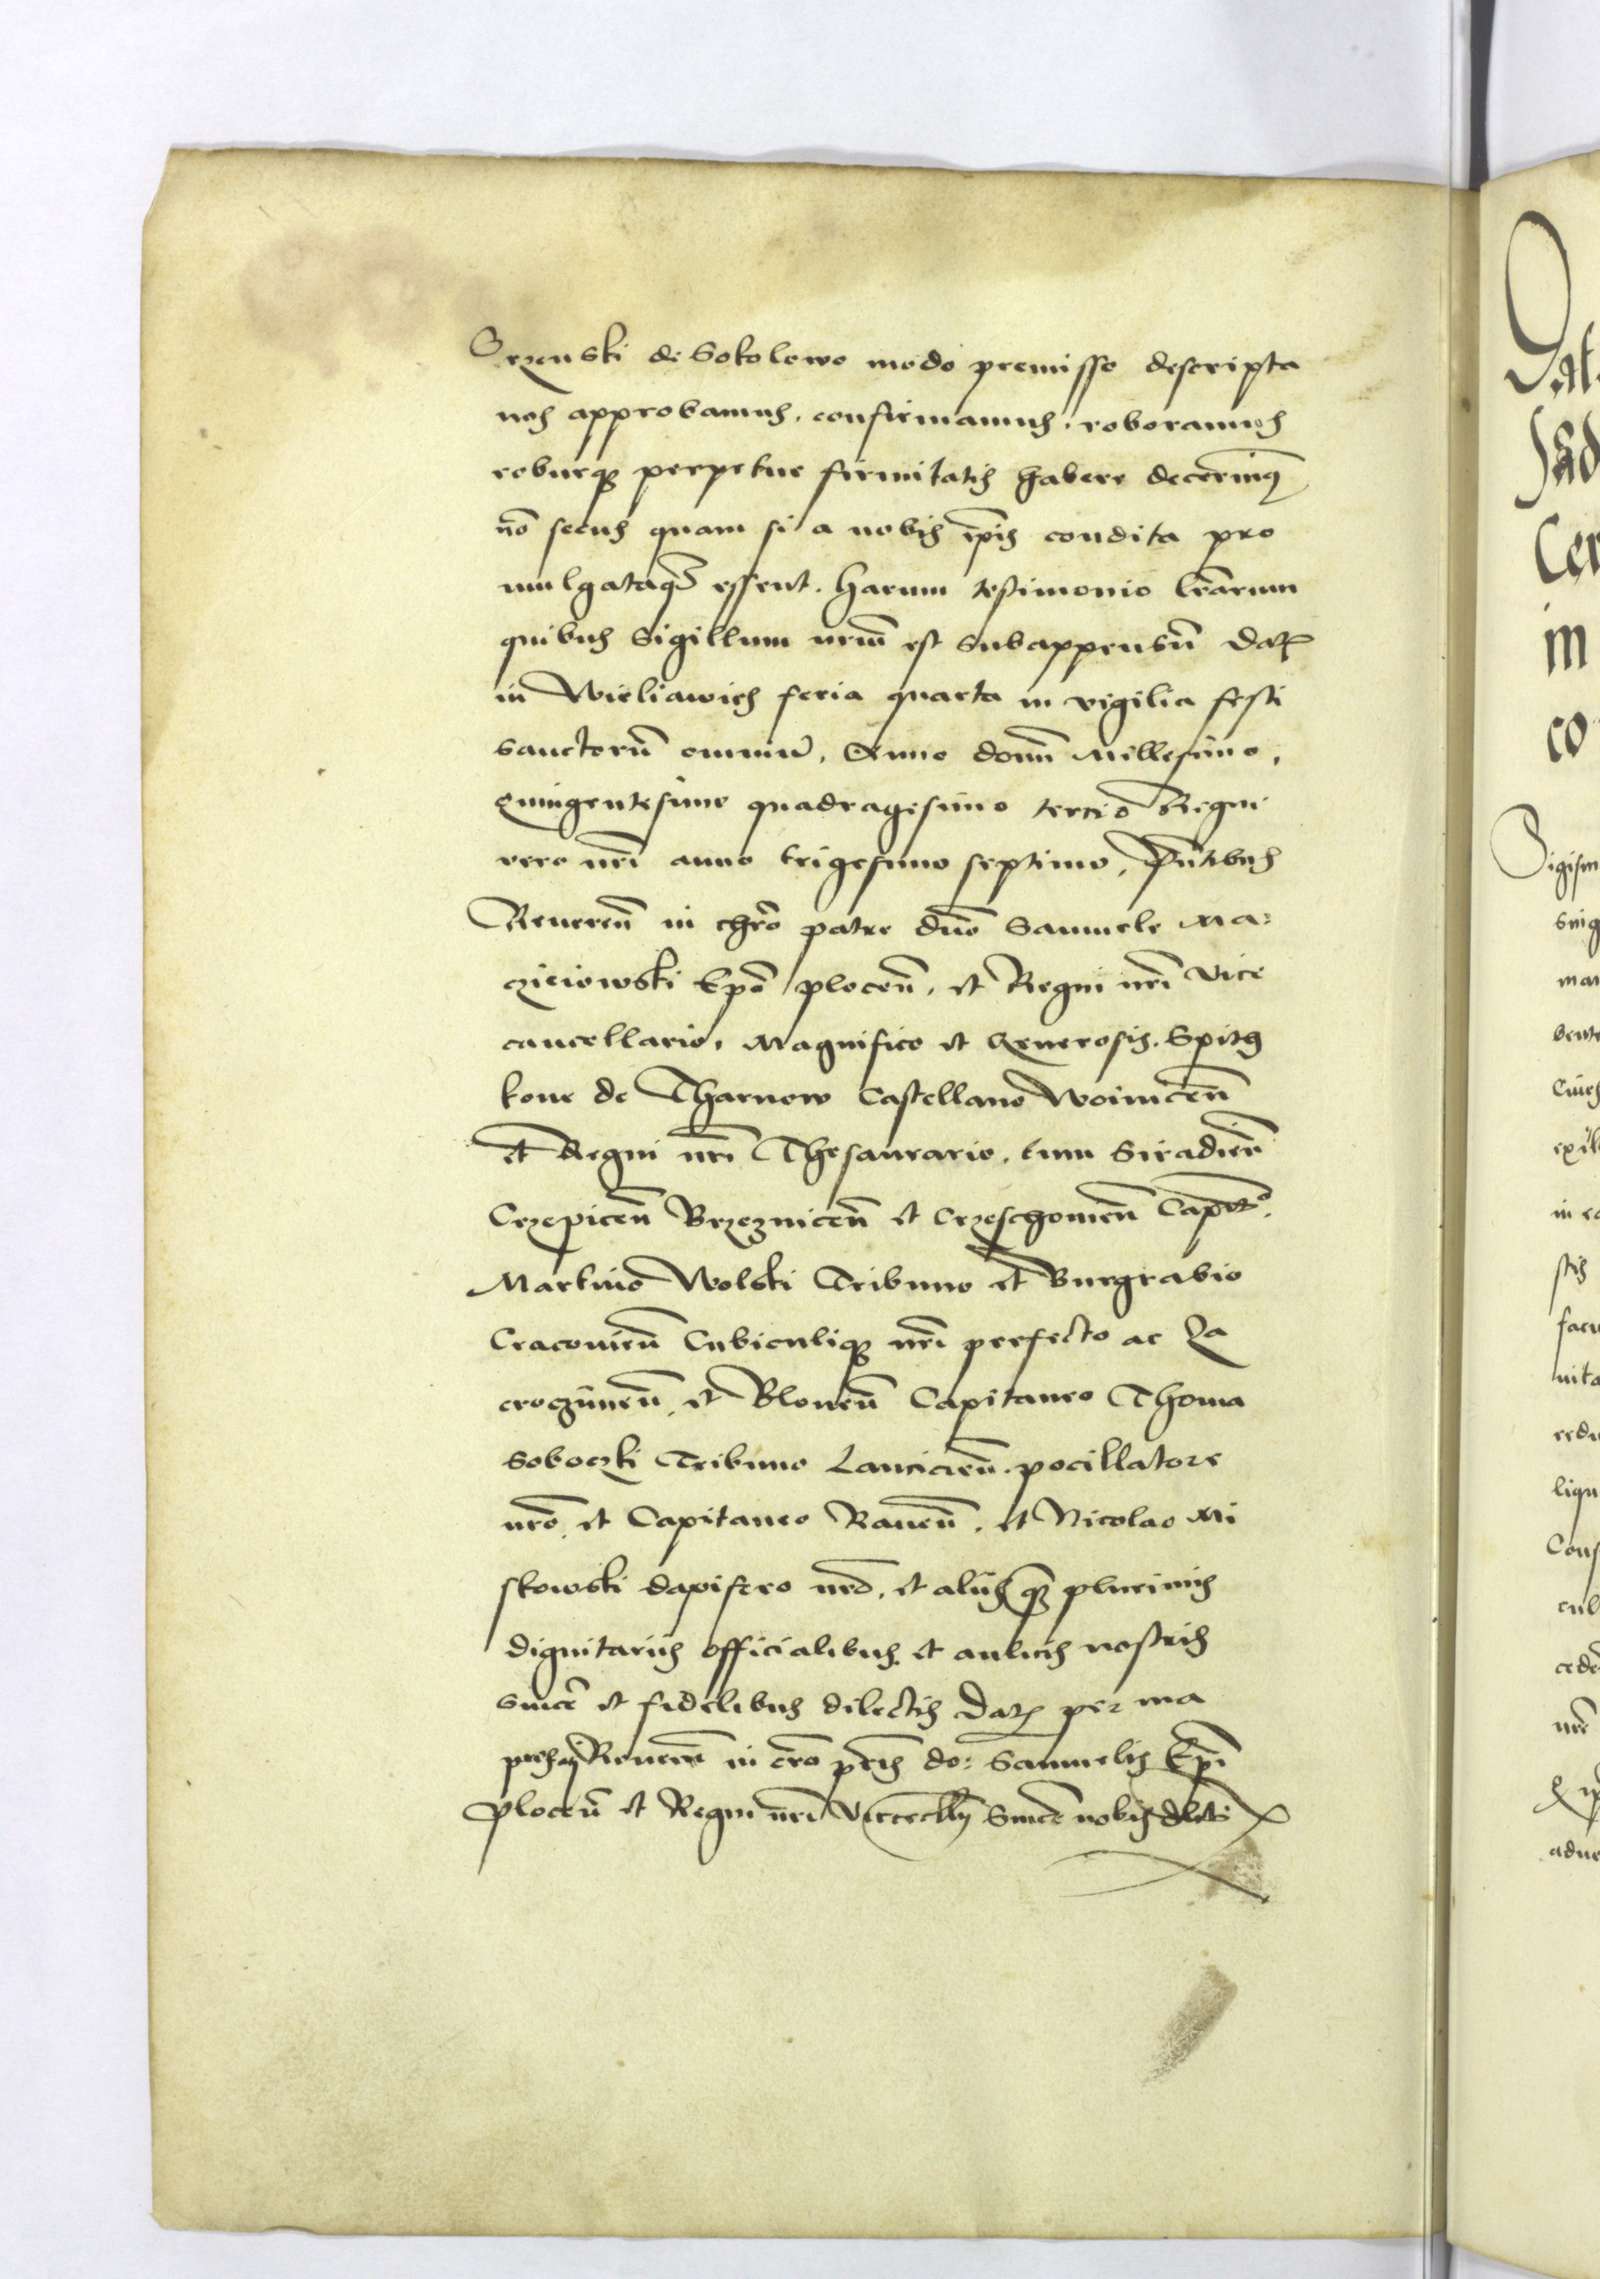 Srzenski de Sokolowo modo premisso descripta
nos approbamus, confirmamus, roboramus
roburq perpetue firmitatis habere decernimꝯ
nō secus quam si a nobis ip̄is condita pro
mulgataq̄ essent. harum testimonio lr̄arum
quibus Sigillum nr̄m est subappensū Datꝭ
in feria quarta in vigilia festi
sanctorū omniū, Anno domī Millesimo,
Quingentesimo quadragesimo tercio Regni
vero nr̄i anno trigesimo septimo, P̄ntibus
Reueren̄ in chrō patre dn̄o Samuele Ma-
czieiowski Ep̄o plocen̄, et Regni nr̄i Vice
cancellario, Magnifico et Generosis, Spith
kone de Tharnow Castellano Woinicen̄
et Regni nr̄i Thesaurario, tum Siradien̄
Crzepicen̄ Brzeznicen̄ et Crzeschowien̄ Capit̄o.
Martino Wolski Tribuno et Burgrabio
Cracouien̄ Cubiculiq nr̄i prefecto ac Za
croczimen̄, et Blonen̄ Capitaneo Thoma
Soboczki Tribuno Lancicien̄ pocillatore
nr̄o, et Capitaneo Rauen̄, et Nicolao Mi
skowski dapifero nr̄o, et aliis q̄ plurimis
dignitariis officialibus et aulicis nostris
sincē et fidelibus dilectis Datꝭ per ma
Reueren̄ in cr̄o pr̄is do: Samuelis Ep̄i
plocen̄ et Regni nr̄i Vicecclr̄ij Sincē nobis dlcti
<br>
Dat
Sad
Cer
in
co
Sigism